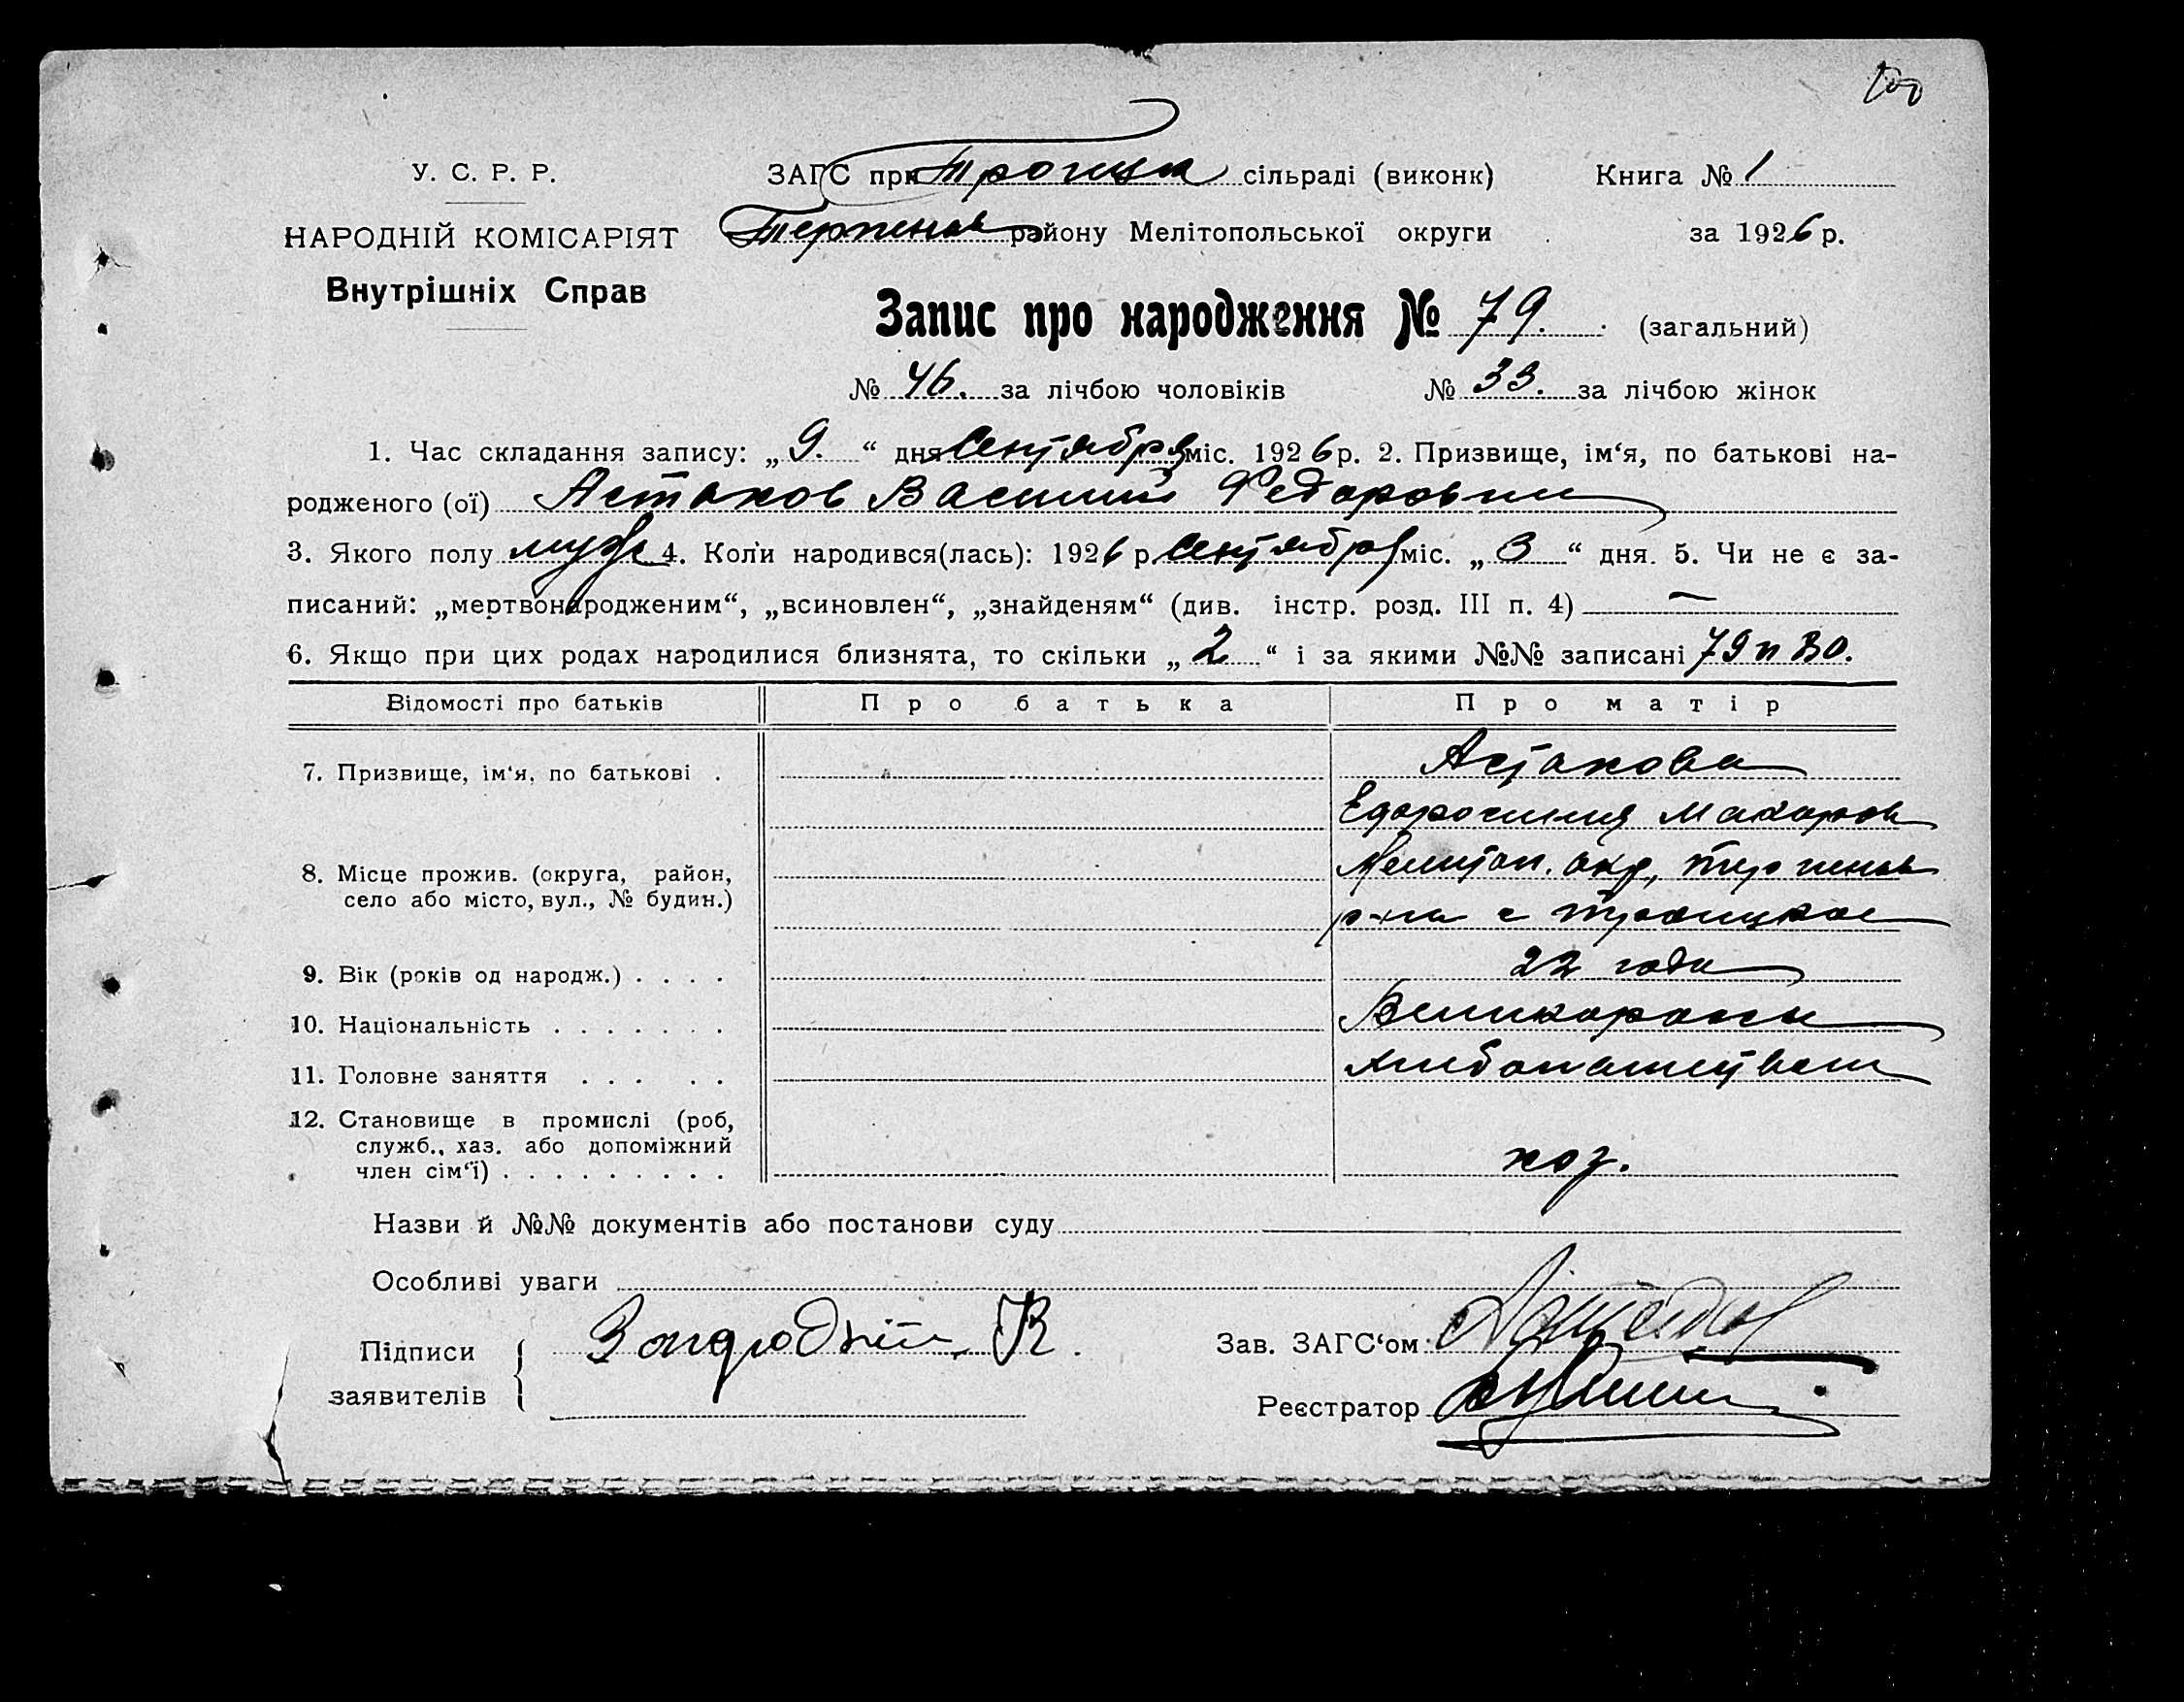 100
У. С. Р. Р.
НАРОДНІЙ КОМІСАРІЯТ
Внутрішніх Справ
ЗАГС при Троицк сільраді (виконк) Книга № 1
Терпеньев району Мелітопольської округи за 1926 р.
Запис про народження № 79. (загальний)
№ 46. за лічбою чоловіків № 33. за лічбою жінок
1. Час складання запису: „9.“ дня Сентября міс. 1926 р. 2. Призвище, ім‘я, по батькові на-
родженого (ої) Астахов Василий Федорович
3. Якого полу муж 4. Коли народився(лась): 1926 р. Сентября міс. „3“ дня. 5. Чи не є за-
писаний: „мертвонародженим“, „всиновлен“, „знайденям“ (див. інстр. розд. III п. 4) —
6. Якщо при цих родах народилися близнята, то скільки „2“ і за якими №№ записані 79 и 80.
Відомості про батьків Про батька Про матір
7. Призвище, ім‘я, по батькові . Астахова
Макаров
8. Місце прожив. (округа, район, село або місто, вул., № будин.) Мелитоп. окр, Терпеньев
р-на с Троицкое
9. Вік (років од народж.) . . . . 22 года
10. Національність . . . . . . . Великоросы
11. Головне заняття . . . . . Хлебопашеством
12. Становище в промислі (роб,
служб., хаз. або допоміжний
член сім‘ї) . . . . . . . . . хоз.
Назви й №№ документів або постанови суду
Особливі уваги
Підписи
заявителів
Зав. ЗАГС‘ом
Реєстратор